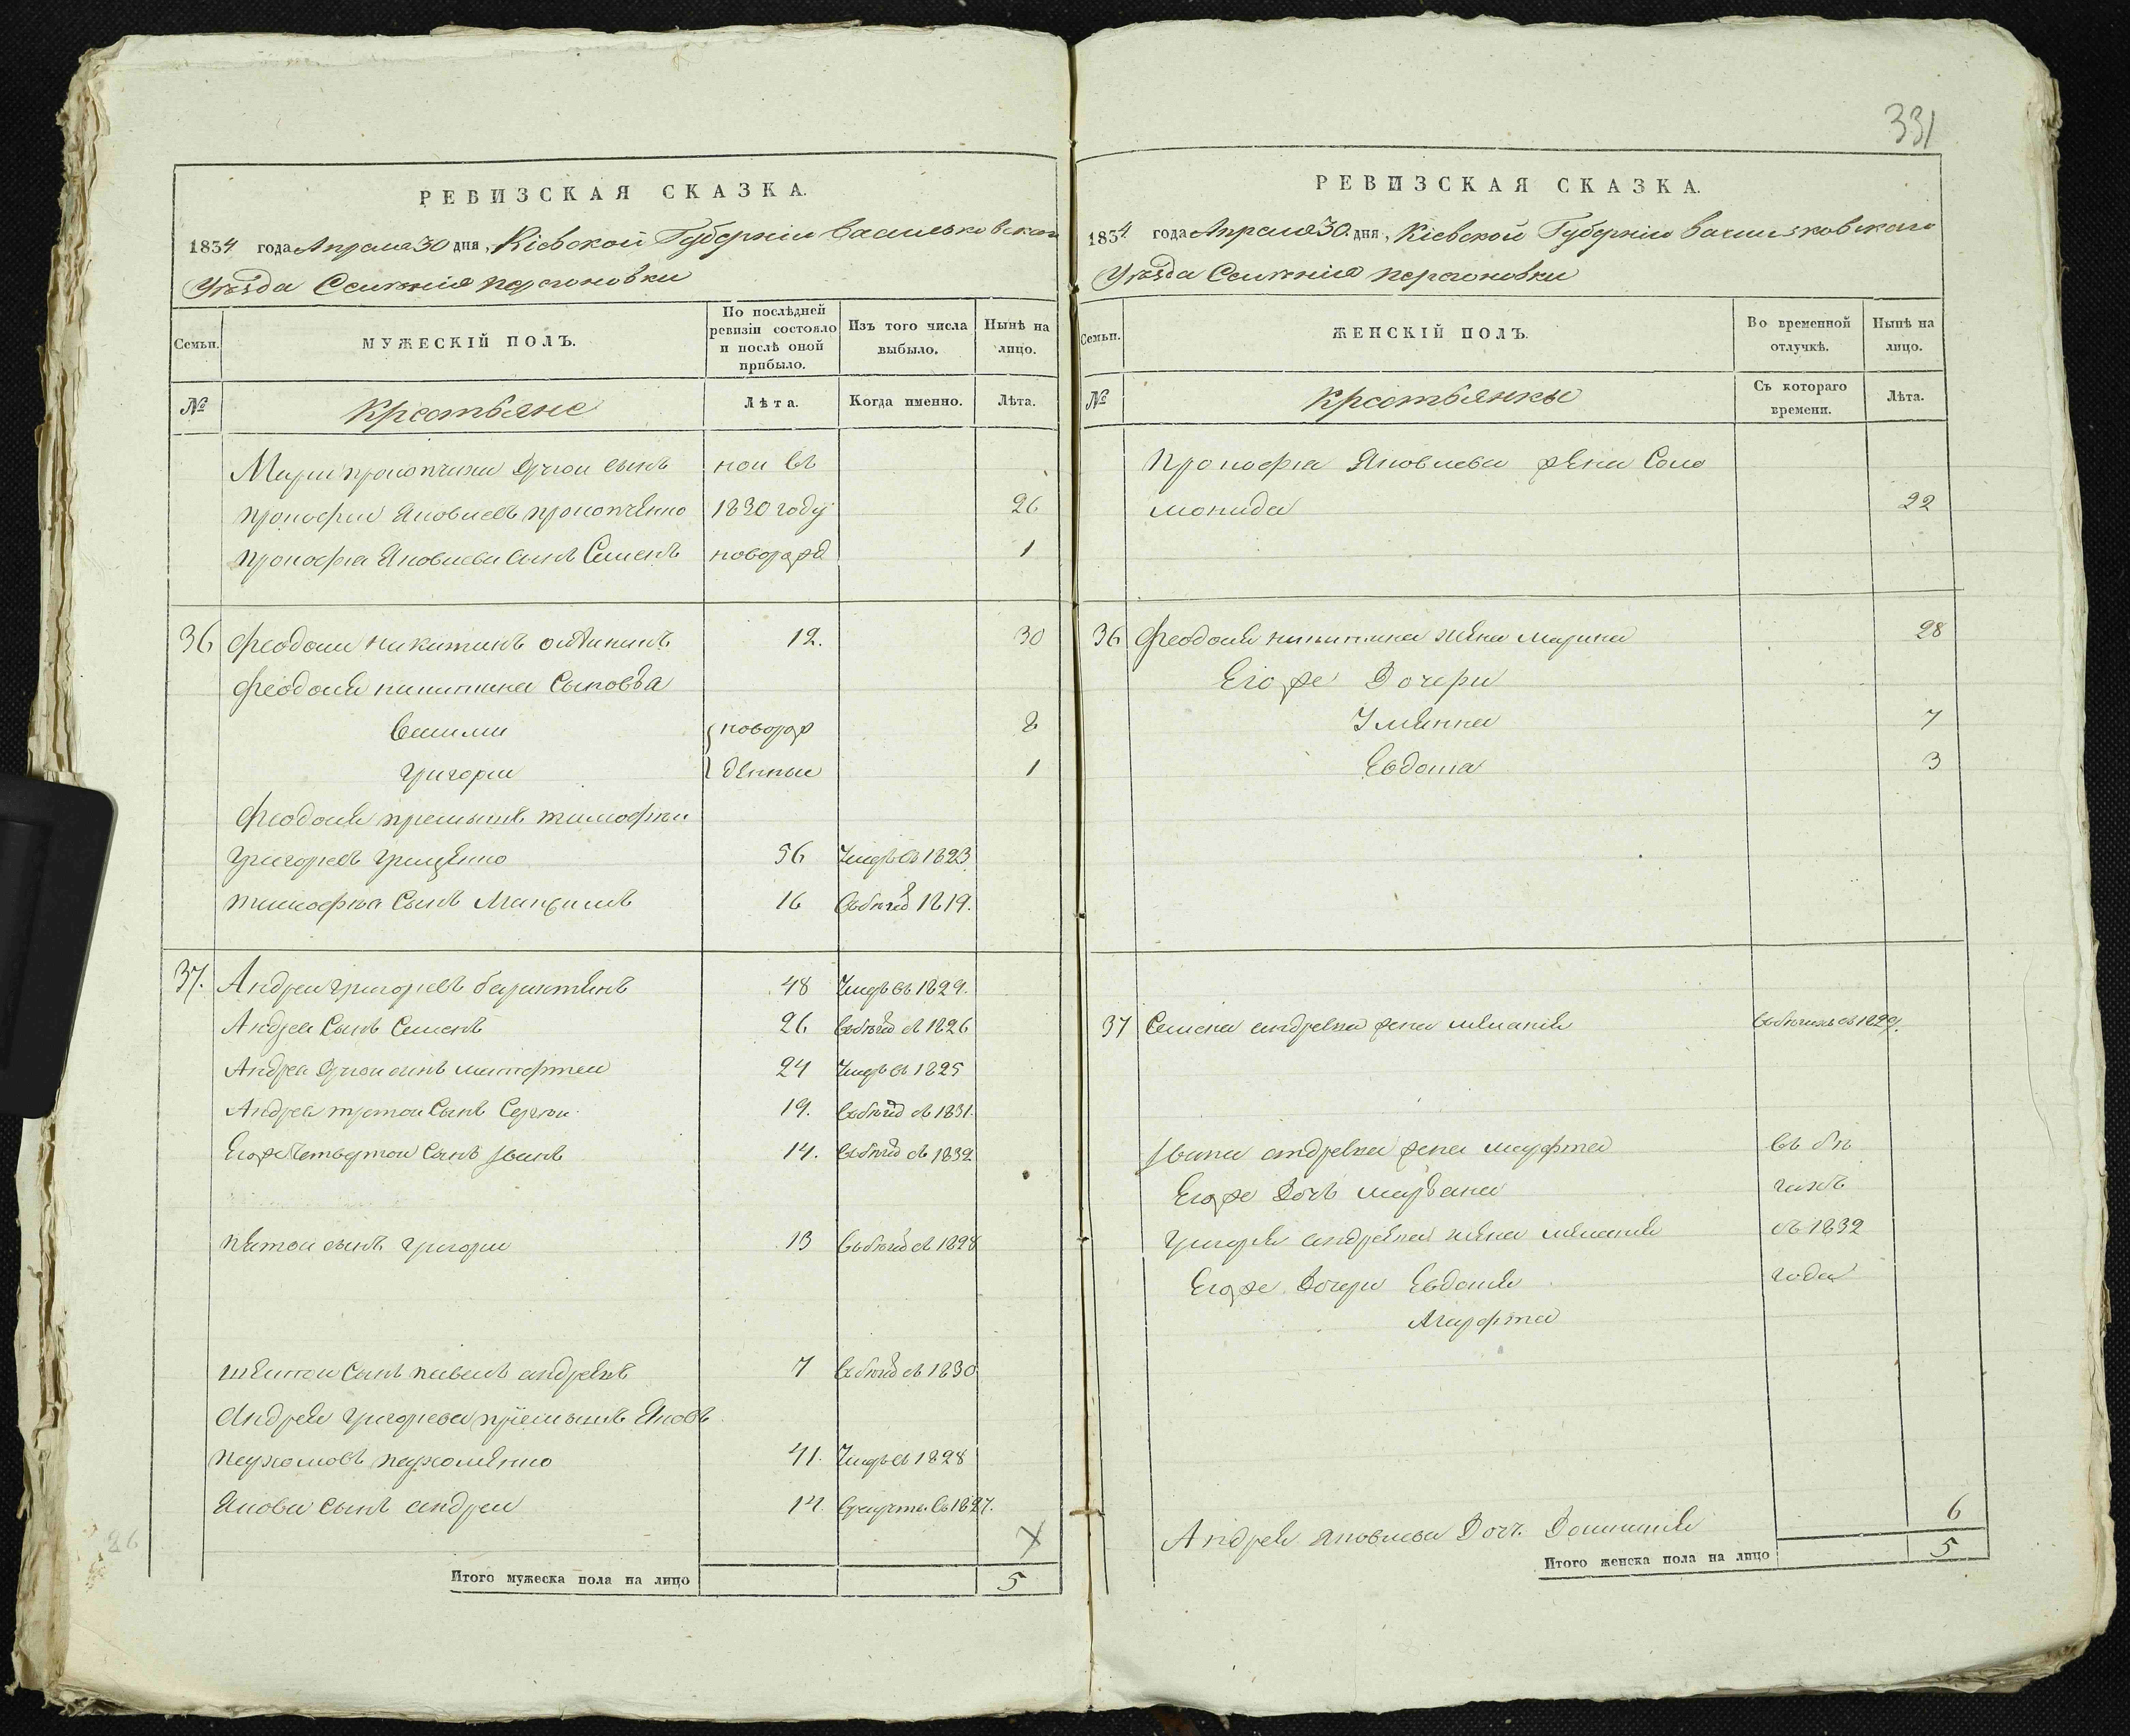 331
РЕВИЗСКАЯ СКАЗКА.
1834 года Апреля 30 дня, Кіевской Губерніи Васильковского
Уѣзда Селенія Перегоновки
Семьи.
МУЖЕСКІЙ ПОЛЪ.
По послѣдней ревизіи состояло и послѣ оной прибыло.
Изъ того числа выбыло.
Нынѣ на лицо.
№
Крестьяне
Лѣта.
Когда именно.
Лѣта.
сынъ ной въ
Прокофий Яковлевъ Прокопченко 1830 году 26
Прокофія Яковлева сынъ Семенъ новорожд 1
36 Феодосій Никитинъ 12. 30
Феодосія Никитина Сыновъя
новорож 8
Григорій денные 1
Феодосія приемышъ Тимофѣй
Григорьевъ Грищенко 56 Умеръ въ 1823
Тимофѣя Сынъ 16 1819.
37. Андрей Григорьевъ 48 Умеръ въ 1829.
Андрея Сынъ Семенъ 26 въ бѣгах съ 1826
Андрея другой сынъ 24 Умеръ въ 1825
Андрея третой Сынъ Сергій 19. въ бѣгах съ 1831.
Его же Четвертой Сынъ Иванъ 14. въ бѣгах съ 1832
Пятой сынъ Григорій 13 въ бѣгах съ 1828
шестой Сынъ Павелъ Андреевъ 7 въ бѣгах съ 1830
Андрея Григорьева приемышъ Яковъ
Пахомовъ Пахоменко 41. Умеръ въ 1828
Якова сынъ Андрей 14. въ рекруты въ 1827.
Итого мужеска пола на лицо 5
РЕВИЗСКАЯ СКАЗКА.
1834 года Апреля 30. дня, Кіевской Губерніи Васильковского
Уѣзда Селенія Перегоновки
Семьи.
ЖЕНСКІЙ ПОЛЪ.
Во временной отлучкѣ.
Нынѣ на лицо.
№
Крестьянки
Съ котораго времени.
Лѣта.
Прокофія Яковлева жена Соло
монида 22
36 Феодосія Никитина жена Марина 28
Его же Дочери
Ульянна 7
Евдокія 3
37 Семена Андреева жена Меланія въ бѣгахъ съ 1829.
Ивана Андреева жена Марфта въ бѣ
Его же Дочь Марьяна гахъ
Григорія Андреева жена Меланія съ 1832
Его же Дочери Евдокія года
Марфта
Андрея Яковлева Дочъ 6
Итого женска пола на лицо 5